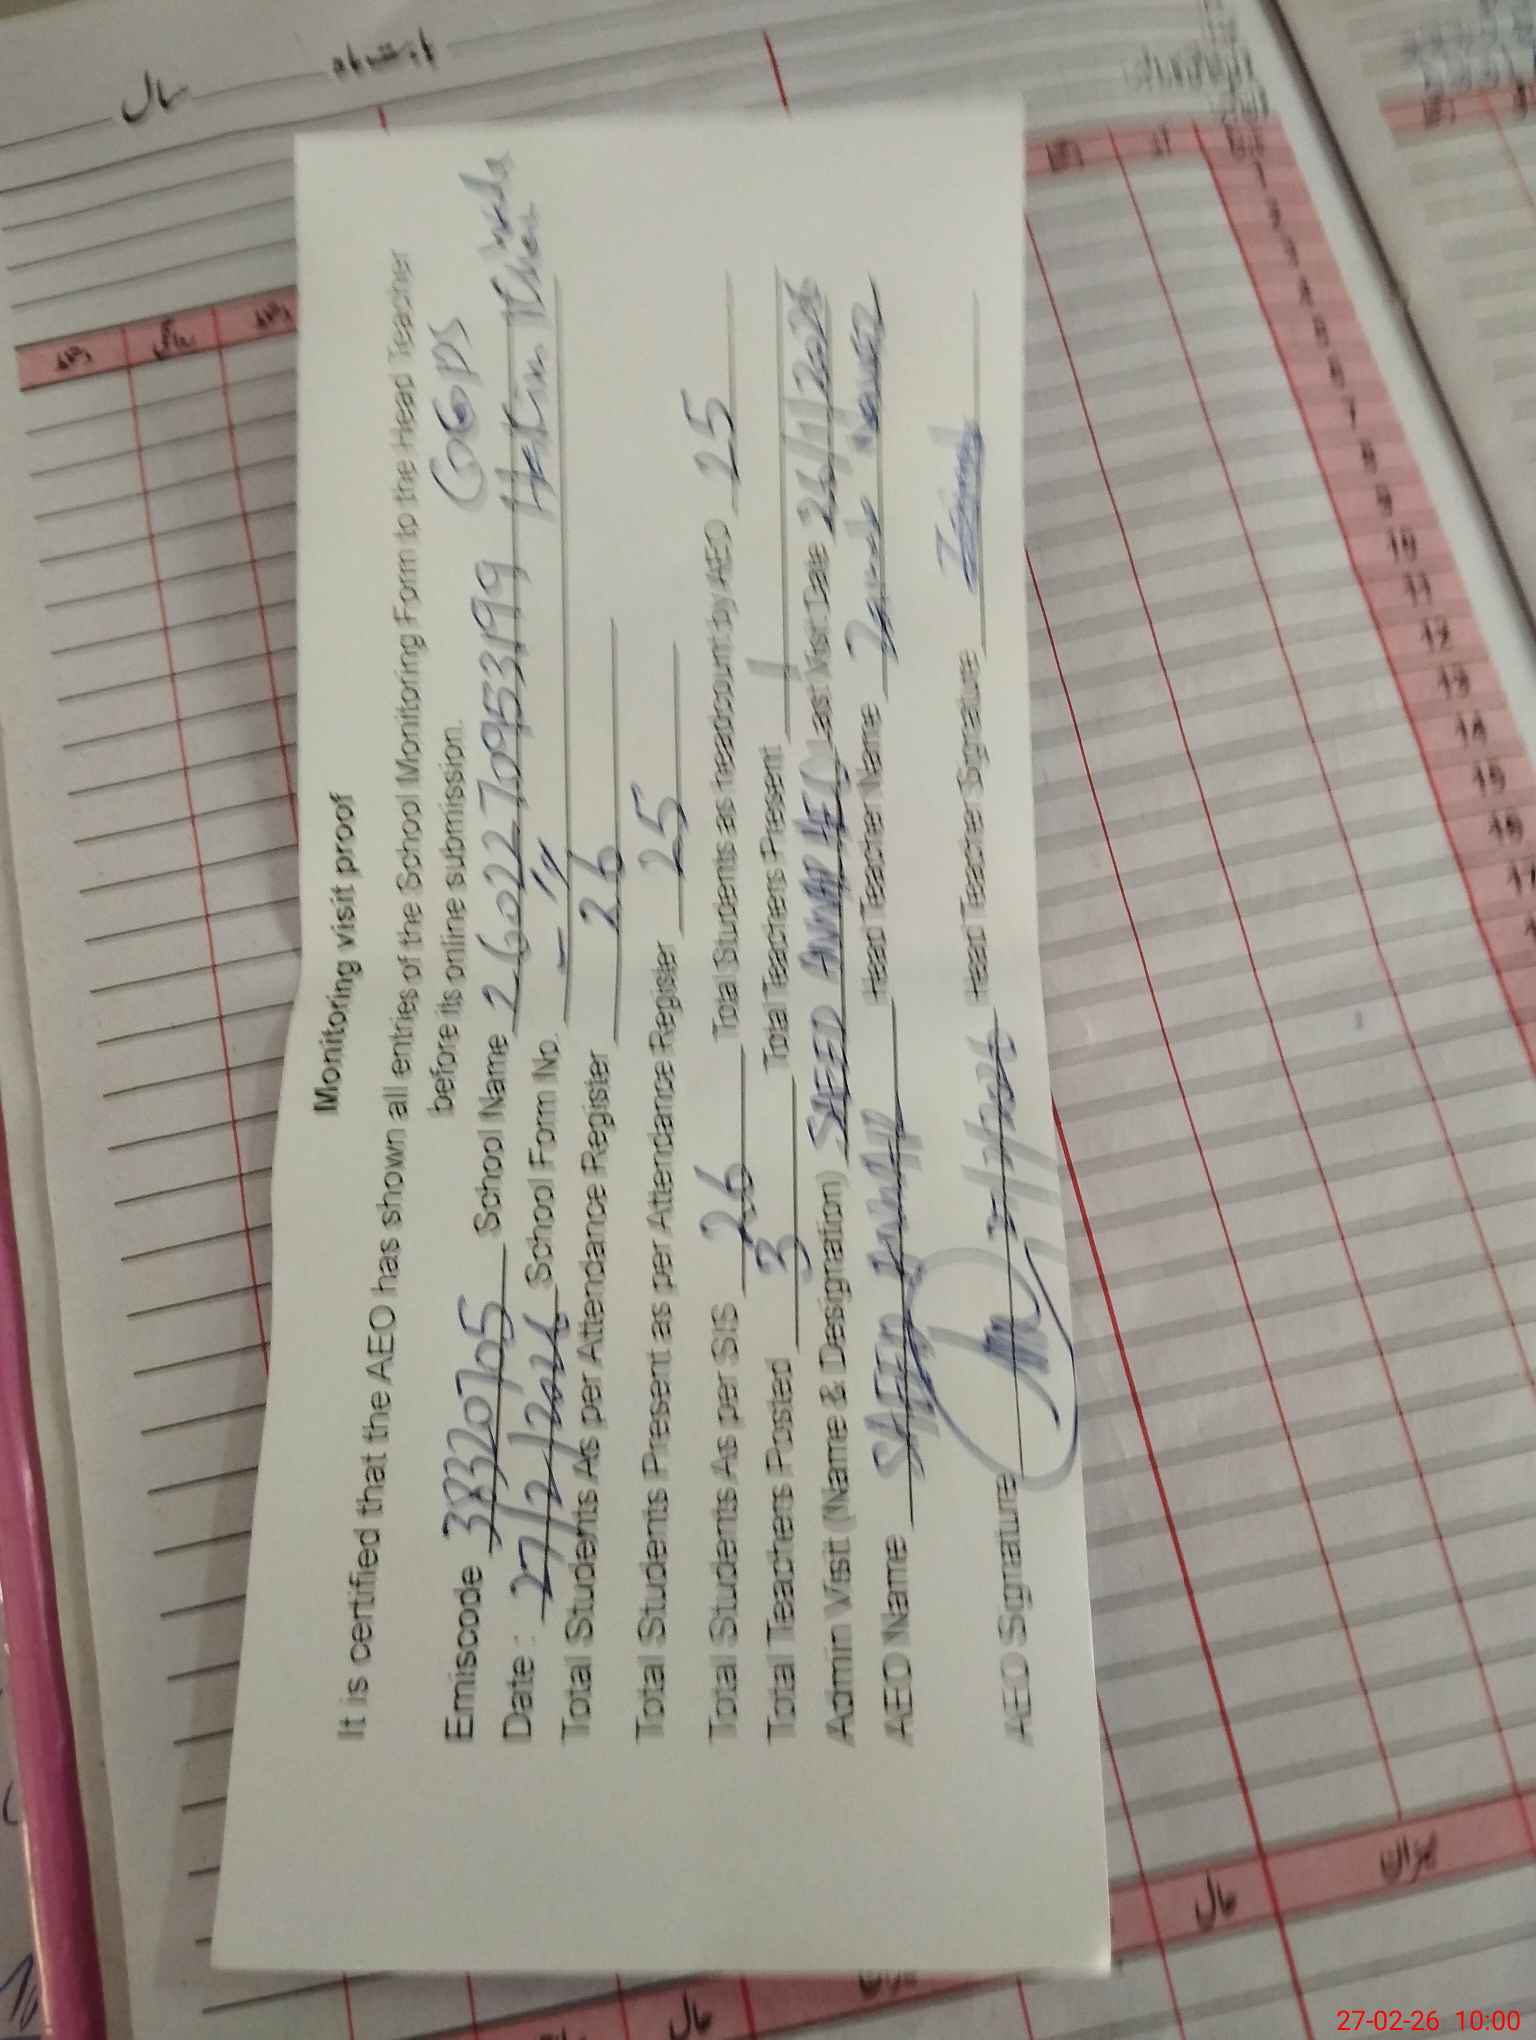 Monitoring visit proof
It is certified that the AEO has shown all entries of the School Monitoring Form to the Head Teacher
before its online submission.
GGPS
Emiscode 38320705 School Name 2602270953199 Hakim
Date: 27/2/2026 School Form No. - "
Total Students As per Attendance Register 26
Total Students Present as per Attendance Register 25
Total Students As per SIS 26 Total Students as headcount by AEO 25
Total Teachers Posted 3 Total Teachers Present 1
Admin Visit (Name & Designation) SAEED ANWAR AEO Last Visit Date 26/1/2026
AEO Name SAEED ANWAR Head Teacher Name
AEO Signature 27/2/2026 Head Teacher Signature
سال
میزان
حال
حال
1
2
3
4
5
6
7
8
9
10
11
12
13
14
15
16
17
27-02-26 10:00